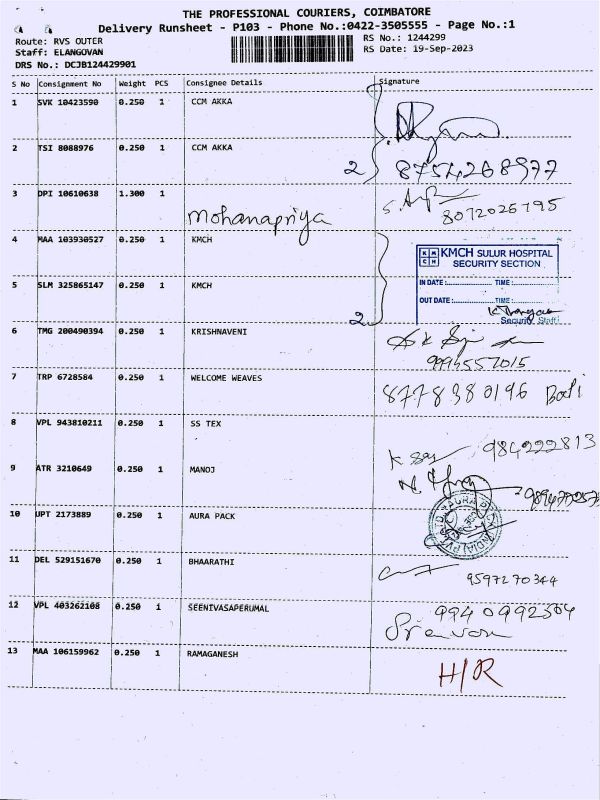 THE PROFESSIONAL COURIERS, COIMBATORE
Delivery Runsheet - P103 - Phone No.:0422-3505555 - Page No.:1
Route: RVS OUTER
RS No.: 1244299
Staff: ELANGOVAN
RS Date: 19-Sep-2023
DRS No.: DCJB124429901
S No Consignment No Weight PCS Consignee Details Signature
1 SVK 10423590 0.250 1 CCM AKKA
2 TSI 8088976 0.250 1 CCM AKKA
2 8754268977
3 DPI 10610638 1.300 1 Mohanapriya
8072026795
4 MAA 103930527 0.250 1 KMCH
KMCH SULUR HOSPITAL
SECURITY SECTION
IN DATE: TIME:
OUT DATE: TIME:
Security Staff
5 SLM 325865147 0.250 1 KMCH
2
6 TMG 200490394 0.250 1 KRISHNAVENI
9994557015
7 TRP 6728584 0.250 1 WELCOME WEAVES
8778380196
8 VPL 943810211 0.250 1 SS TEX
984222813
9 ATR 3210649 0.250 1 MANOJ
10 UPT 2173889 0.250 1 AURA PACK
11 DEL 529151670 0.250 1 BHAARATHI
9597270344
12 VPL 403262108 0.250 1 SEENIVASAPERUMAL
9940992304
13 MAA 106159962 0.250 1 RAMAGANESH
H/R